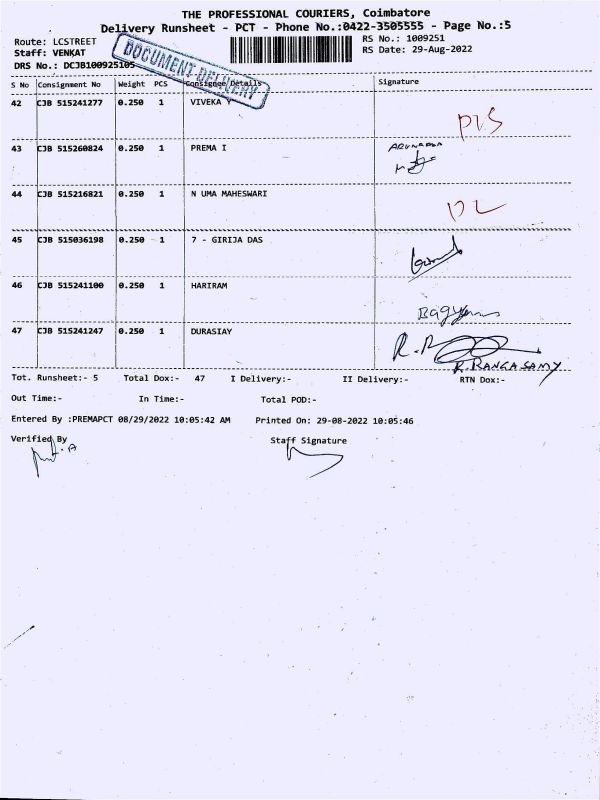 THE PROFESSIONAL COURIERS, Coimbatore
Delivery Runsheet - PCT - Phone No.:0422-3505555 - Page No.:5
Route: LCSTREET RS No.: 1009251
Staff: VENKAT RS Date: 29-Aug-2022
DRS No.: DCJB100925105
DOCUMENT DELIVERY
S No Consignment No Weight PCS Consignee Details Signature
42 CJB 515241277 0.250 1 VIVEKA Y
43 CJB 515260824 0.250 1 PREMA I
44 CJB 515216821 0.250 1 N UMA MAHESWARI
45 CJB 515036198 0.250 1 7 - GIRIJA DAS
46 CJB 515241100 0.250 1 HARIRAM
47 CJB 515241247 0.250 1 DURASIAY
R. RANGASAMY
Tot. Runsheet:- 5 Total Dox:- 47 I Delivery:- II Delivery:- RTN Dox:-
Out Time:- In Time:- Total POD:-
Entered By :PREMAPCT 08/29/2022 10:05:42 AM Printed On: 29-08-2022 10:05:46
Verified By Staff Signature